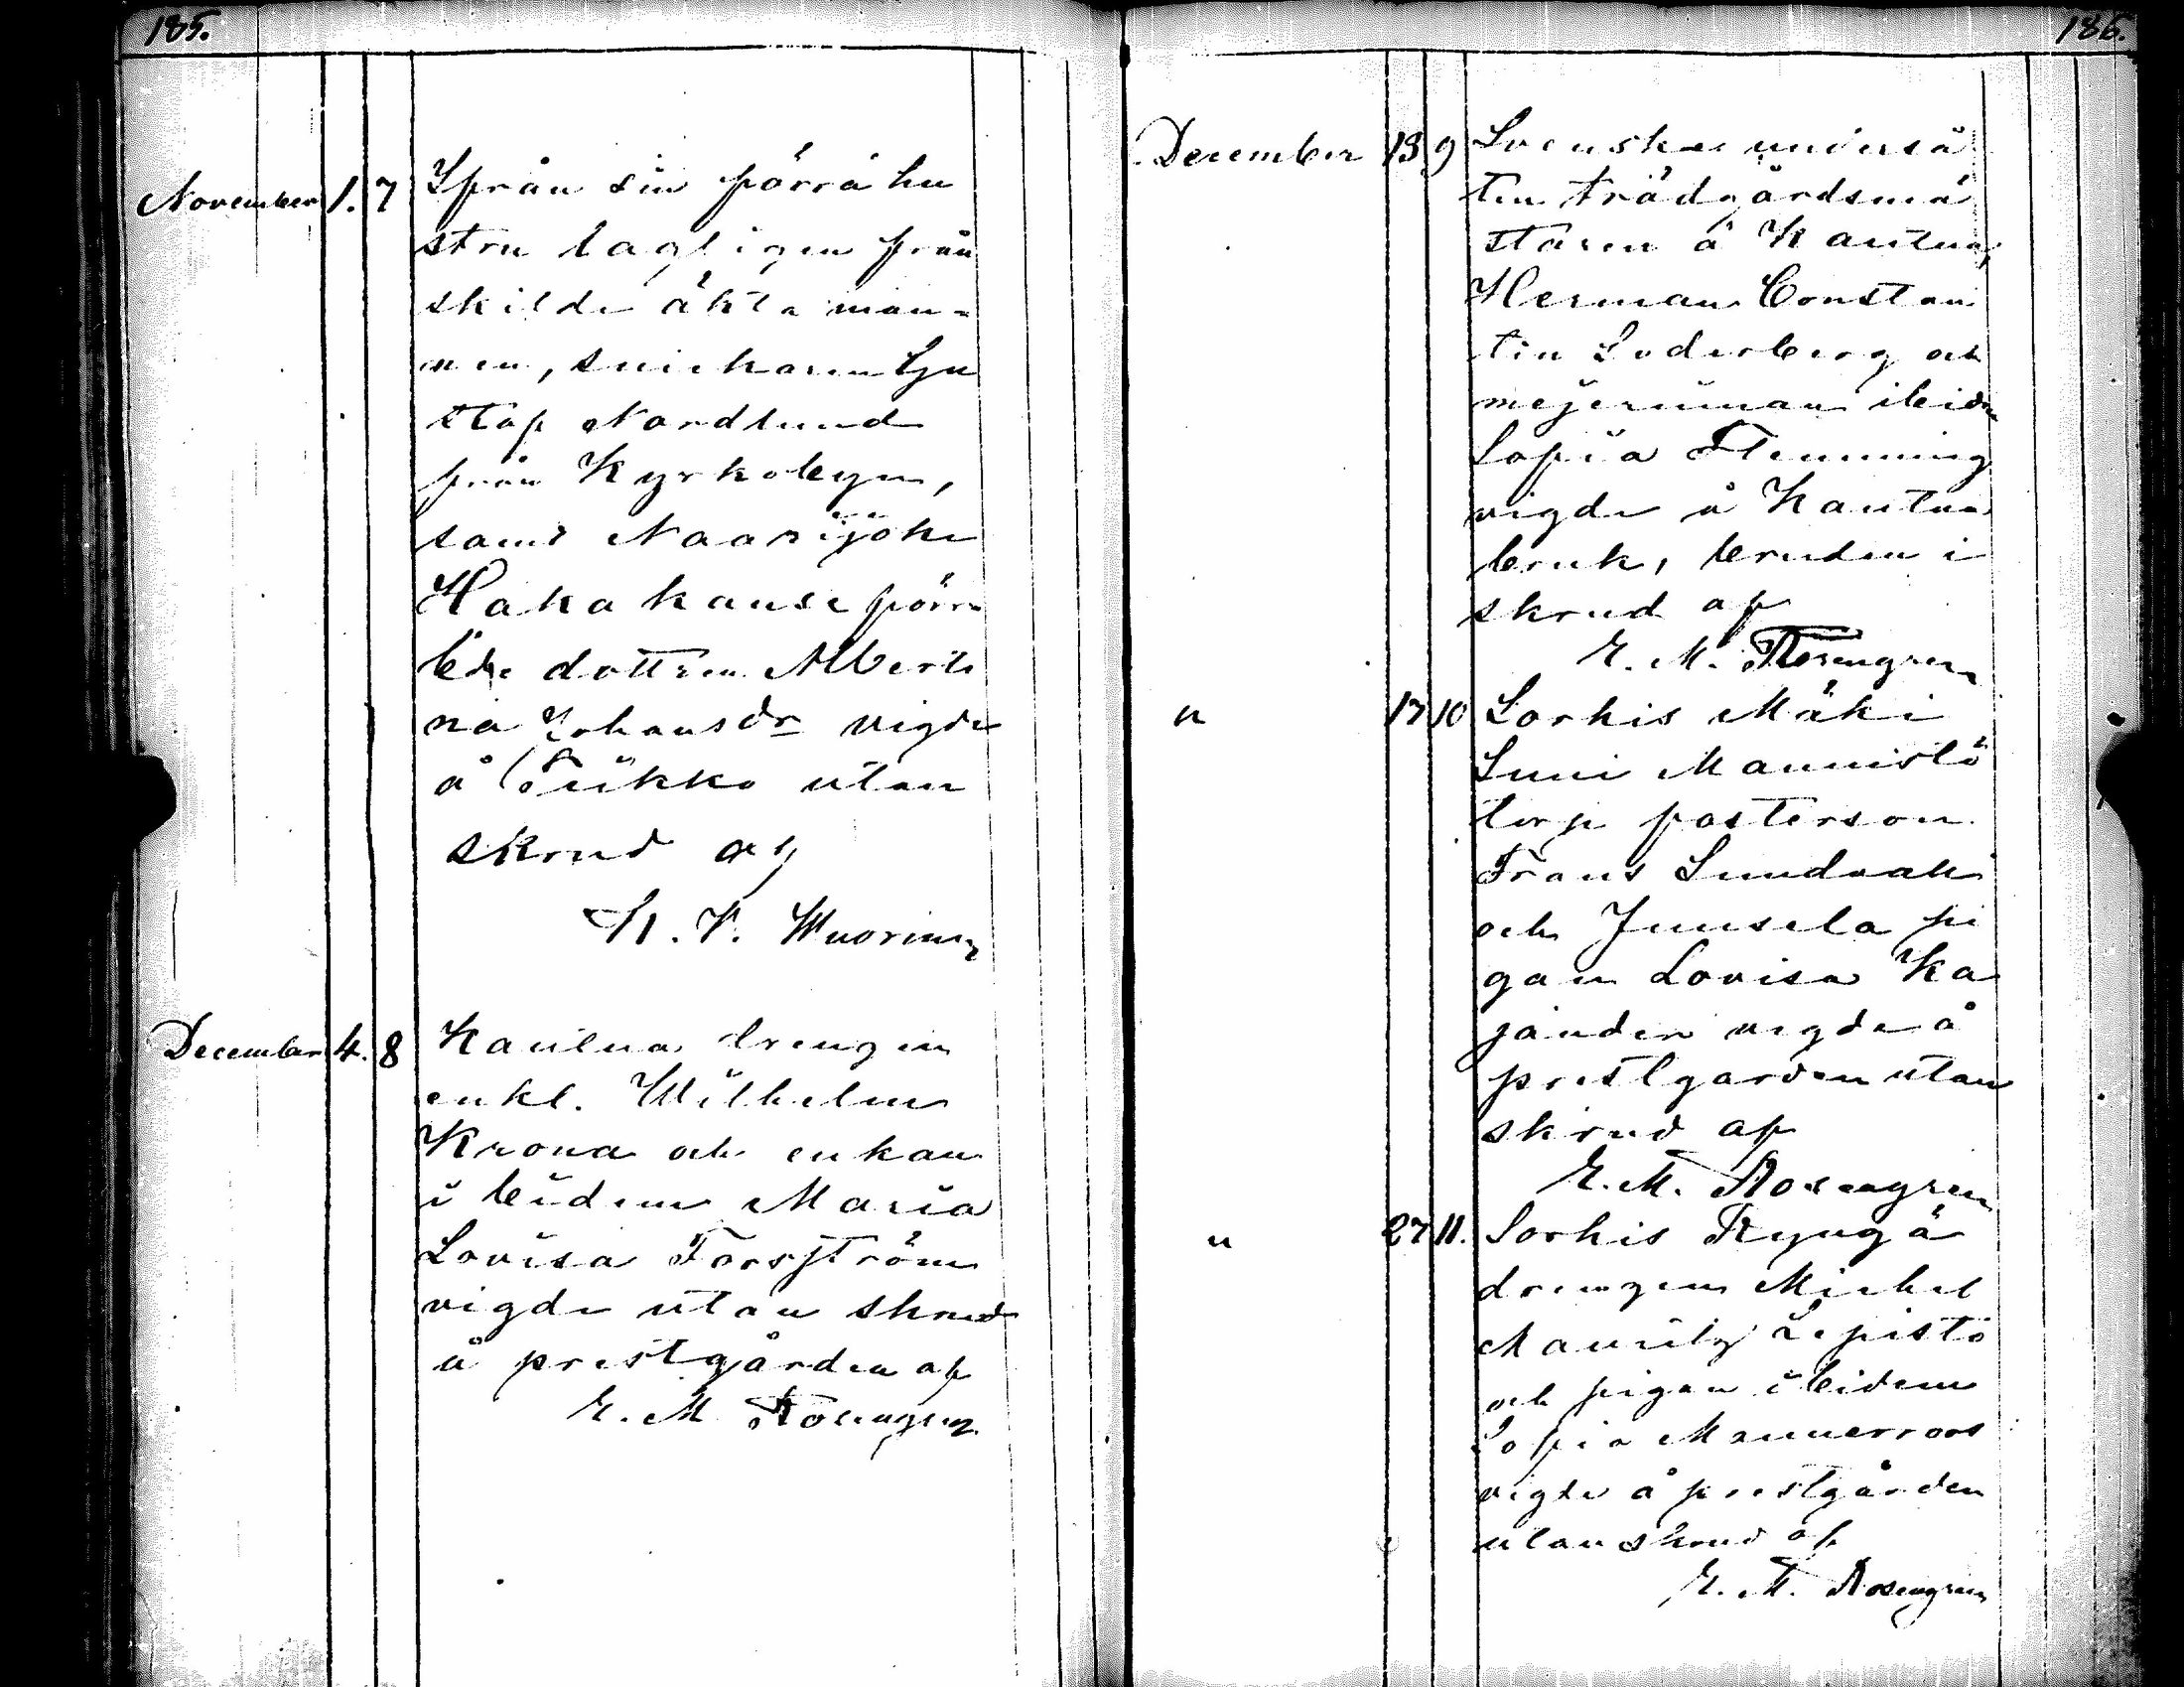 185.
November 1. 7 Ifrån sin förra hu
stru lagligen från
skilde äkta man=
nen, snickaren Gu
staf Nordlund
från Kyrkobyn,
samt Naarijoki
Hakakansi förra
bde dottren Alberti
na Johansdr vigde
å Teikko utan
skrud af
K. V. Wuorinen
December 4. 8 Kautua drengen
enkl. Wilhelm
Krona och enkan
i bidem Maria
Lovisa Forsström
vigde utan skrud
å prestgården af
E. M. Rosengren
186.
December 13 9 Svenske underså
ten trädgårdsmä
staren å Kautua,
Herman Constan
tin Söderberg och
mejerinnan ibidm
Sofia Flemming
vigde å Kautua
bruk, bruden i
skrud af
E. M. Rosengren
" 17 10 Sorkis Mäki
Suni Mannistö
torp fosterson
Frans Sundvall
och Juusela pi
gan Lovisa Ka
jander vigde å
prestgården utan
skrud af
E. M. Rosengren
" 27 11. Sorkis Ryngä
drengen Michel
Mauritz Lepistö
och pigan ibidem
Sofia Mannerroos
vigde å prestgården
utan skrud af
E. M. Rosengren